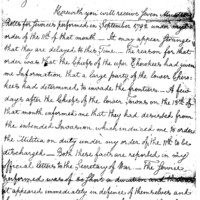 Herewith you will receive Seven Muster
Rolls for Services performed in September 1792 under my
order of the 11th of that month. It may appear strange
that they are delayed to this time. The reason for that
order was that the Chiefs of the upper Cherokees had given
me Information that a large party of the lower Chero-
kees had determined to invade the frontiers. A few
days after the Chiefs of the lower towns on the 15th of
that month informed me that they had desisted from
the intended Invasion which induced me to order
the Militia on duty under my order of the 11th to be
discharged. Both these facts are reported in my
official letters to the Secretary of War. The Service
performed was of so short a duration and that
it appeared immediately in defence of themselves and